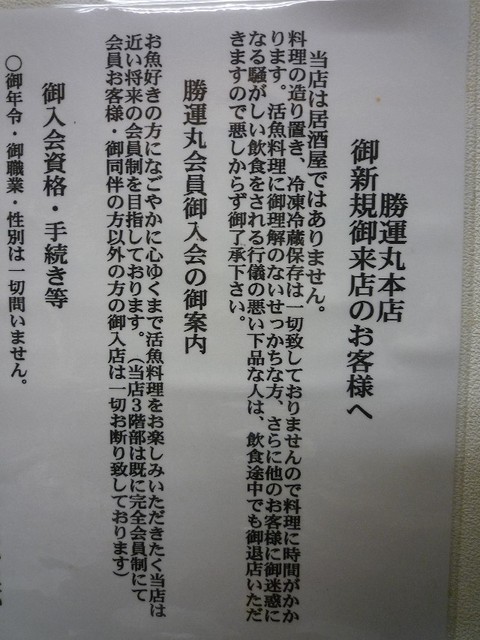 勝運丸本店
御新規御来店のお客様へ
当店は居酒屋ではありません。
料理の造り置き、冷凍冷蔵保存は一切致しておりませんので料理に時間がかか
ります。活魚料理に御理解のないせっかちな方、さらに他のお客様に御迷惑に
なる騒がしい飲食をされる行儀の悪い下品な人は、飲食途中でも御退店いただ
きますので悪しからず御了承下さい。
勝運丸会員御入会の御案内
お魚好きの方になごやかに心ゆくまで活魚料理をお楽しみいただきたく当店は
近い将来の会員制を目指しております。（当店3階部は既に完全会員制にて
会員お客様・御同伴の方以外の方の御入店は一切お断り致しております）
御入会資格・手続き等
○御年令・御職業・性別は一切問いません。